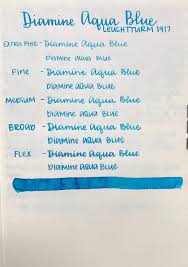 Diamine Aqua Blue
LEUCHTTURM 1917
EXTRA FINE - Diamine Aqua Blue
Diamine Aqua Blue
FINE - Diamine Aqua Blue
Diamine Aqua Blue
MEDIUM - Diamine Aqua Blue
Diamine Aqua Blue
BROAD - Diamine Aqua Blue
Diamine Aqua Blue
FLEX - Diamine Aqua Blue
Diamine Aqua Blue